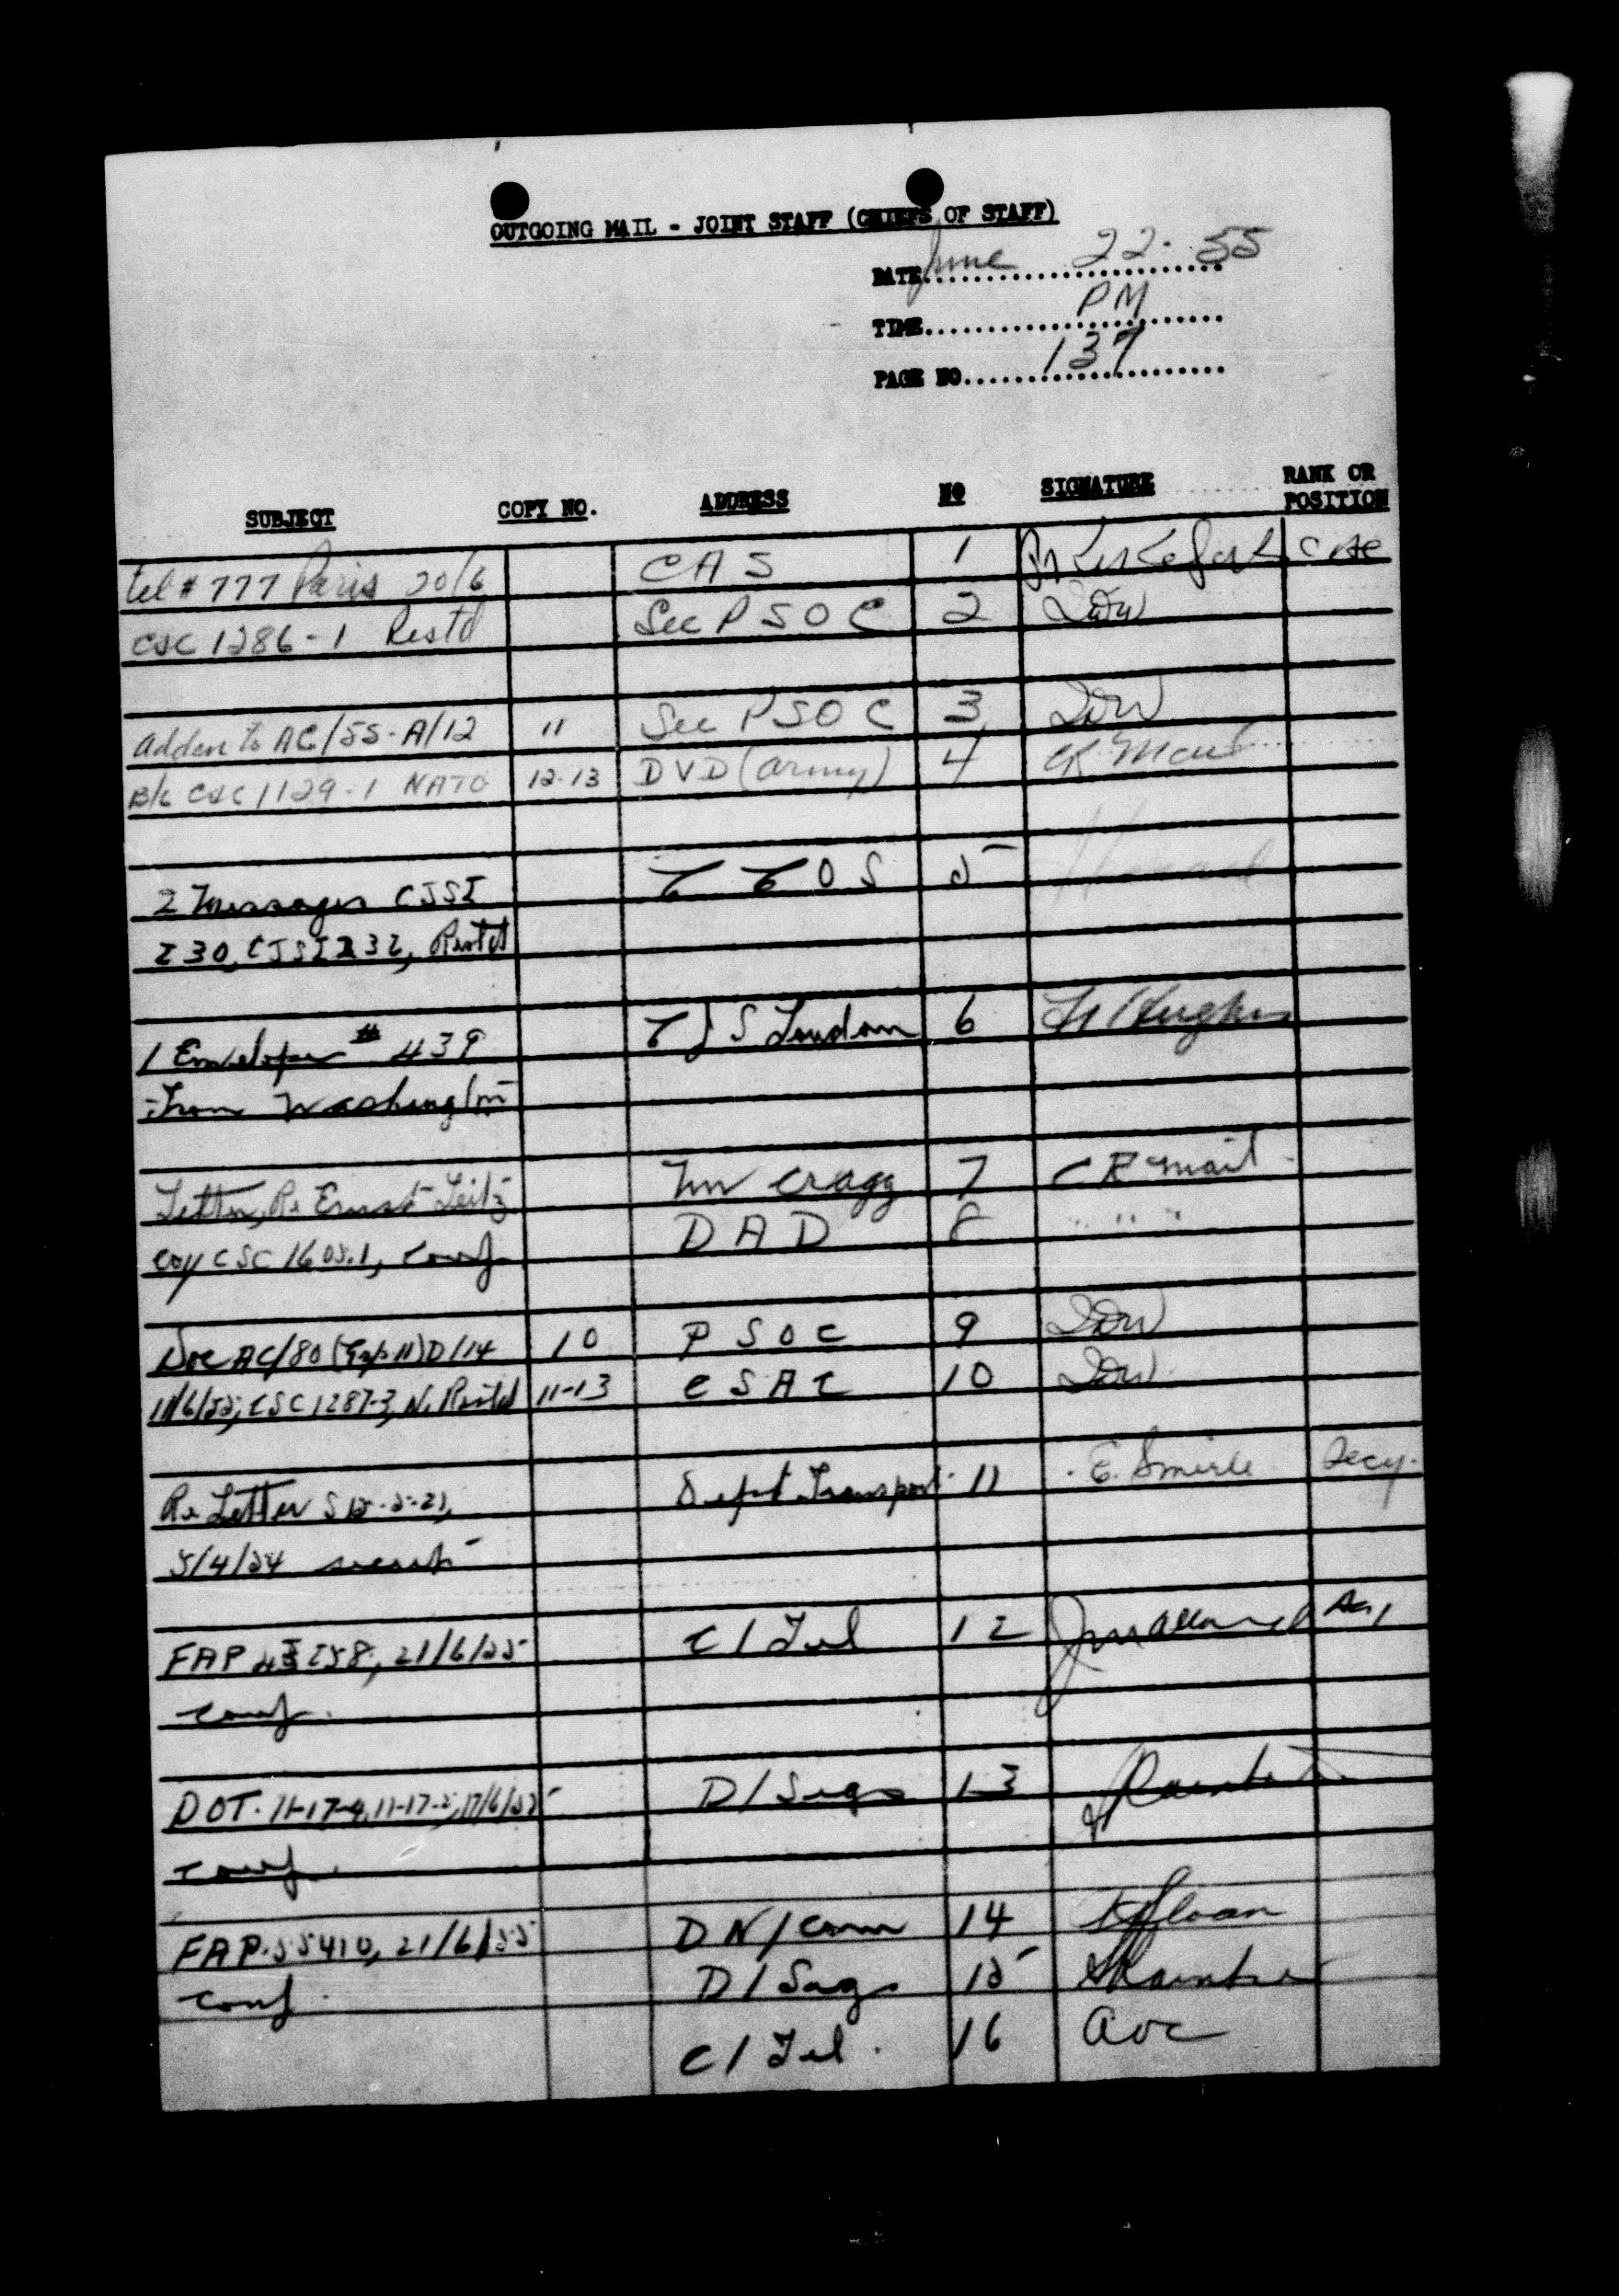 OUTGOING MAIL - JOINT STAFF (CHIEFS OF STAFF)
DATE June 22. 55
TIME PM
PAGE NO 137
SUBJECT COPY NO. ADDRESS NO SIGNATURE RANK OR POSITION
tel # 777 Paris 20/6 CAS 1 CAS
CSC 1286-1 Restd Sec PSOC 2
Adden to AC/55-A/12 11 Sec PSOC 3
B/c CSC 1129-1 NATO 12-13 DVD (Army) 4
2 Messages CJSI CCOS 5
230, CJSI 232, Restd
1 Envelope # 439 CJS London 6 Hughes
From Washington
Letter, Re Ernst Leitz Mr Cragg 7 CR Mail
coy CSC 1605.1, conf DAD 8 " " "
Doc AC/80 (Exp 11) D/14 10 PSOC 9
11/6/55, CSC 1287-3, N. Restd 11-13 CSAC 10
Re Letter Dept Transport 11 E. Smirle Secy.
5/4/54
FAP 21/6/55 C/Tel 12
conf.
DOT. 11-17-4, 11-17-2, 17/6/55 D/Sigs 13
conf.
FAP. 55410, 21/6/55 DN/Comm 14 Sloan
conf. D/Sigs 15
C/Tel. 16